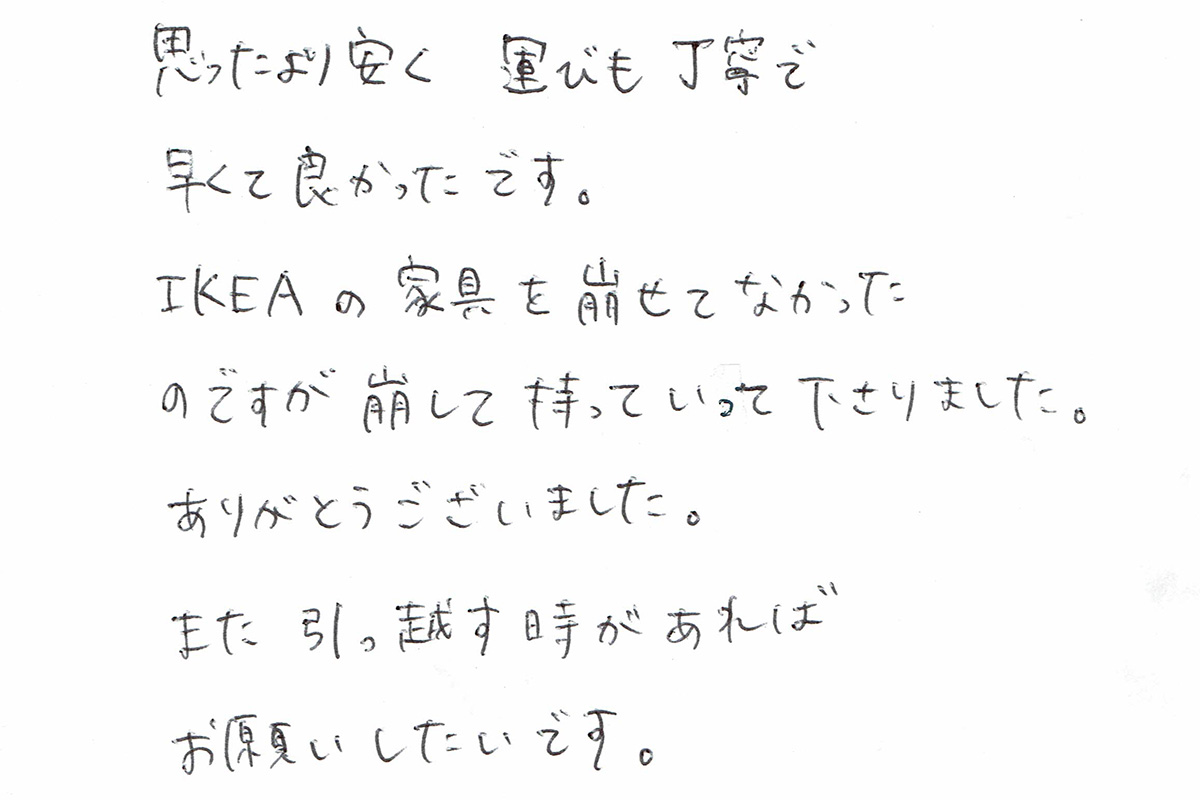 思ったより安く 運びも丁寧で
早くて良かったです。
IKEAの家具を崩せてなかった
のですが崩して持っていって下さりました。
ありがとうございました。
また引っ越す時があれば
お願いしたいです。